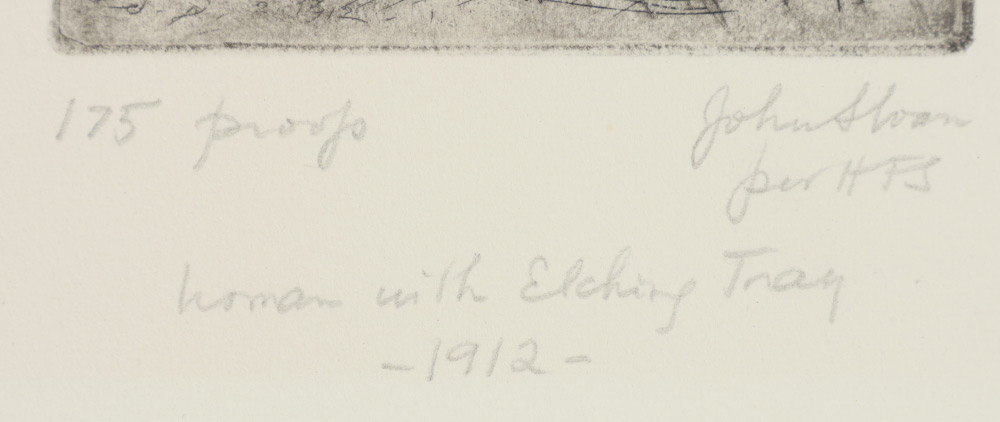 175 proofs
John Sloan
per HFS
Woman with Etching Tray
-1912-